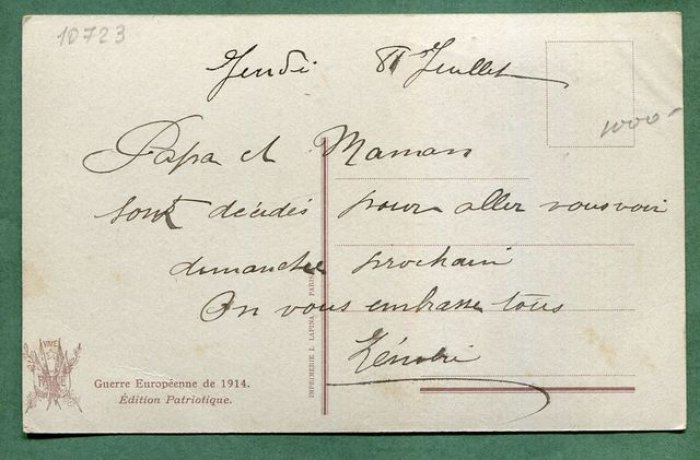 10723
Jeudi 8 Juillet
1000-
Papa et Maman
sont décidés pour aller vous voir
dimanche prochain
On vous embrasse tous
VIVE
IMPRIMERIE I. LAPINA PARIS
Guerre Européenne de 1914.
Édition Patriotique.